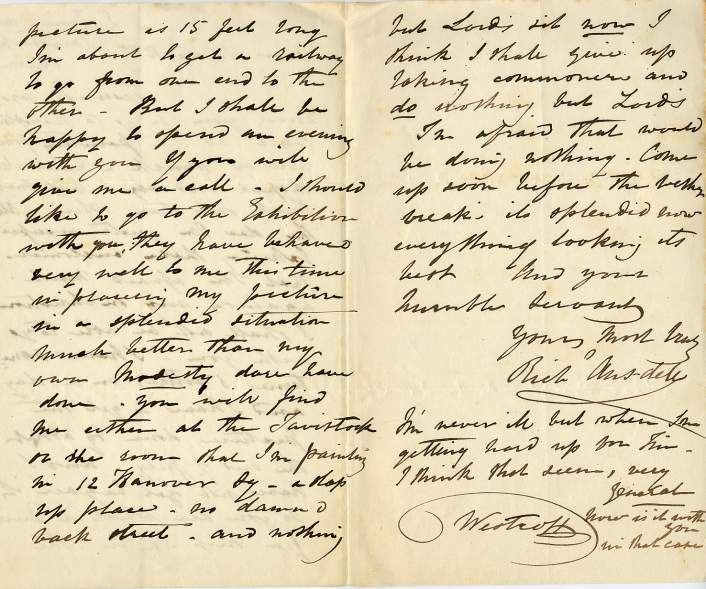 picture is 15 feet long
I'm about to get a railway
to go from one end to the
other - But I shall be
happy to spend an evening
with you If you will
give me a call - I should
like to go to the Exhibition
with you, they have behaved
very well to me this time
in placeing my picture
in a splendid situation
much better than my
own Modesty dare have
done - you will find
me either at the Tavistock
or the room that I'm painting
in 12 Hanover Sq - a slap
up place - no damn'd
back street - and nothing
but Lords sit now I
think I shall give up
taking commoners and
do nothing but Lords
I'm afraid that would
be doing nothing - Come
up soon before the
break - its splendid now
everything looking its
best And your
humble servant
Yours Most truly
Rich Ansdell
I'm never ill but when I'm
getting hard up for Tin -
I think that seems, very
general
how is it with
you
in that case
Westcott